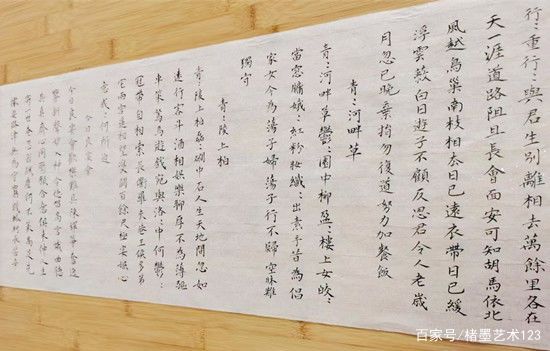 行〻重行〻與君生別離相去萬餘里各在
天一涯道路阻且長會面安可知胡馬依北
風越鳥巢南枝相去日已遠衣帶日已緩
浮雲蔽白日遊子不顧反思君令人老歲
月忽已晚棄捐勿復道努力加餐飯
青〻河畔草
青〻河畔草鬱〻園中柳盈〻樓上女皎〻
當窗牖娥〻紅粉妝纖〻出素手昔為倡
家女今為蕩子婦蕩子行不歸空牀難
獨守
青〻陵上柏
青〻陵上柏磊〻磵中石人生天地間忽如
遠行客斗酒相娛樂聊厚不為薄驅
車策駑馬遊戲宛與洛洛中何鬱〻
冠帶自相索長衢羅夾巷王侯多第
宅兩宮遙相望雙闕百餘尺極宴娛心
意戚〻何所迫
今日良宴會
今日良宴會歡樂難具陳彈箏奮逸
響新聲妙入神令德唱高言識曲聽
其真齊心同所願含意俱未伸人生
寄一世奄忽若飆塵何不策高足先
據要路津無為守窮賤轗軻長苦辛
百家号/楮墨艺术123